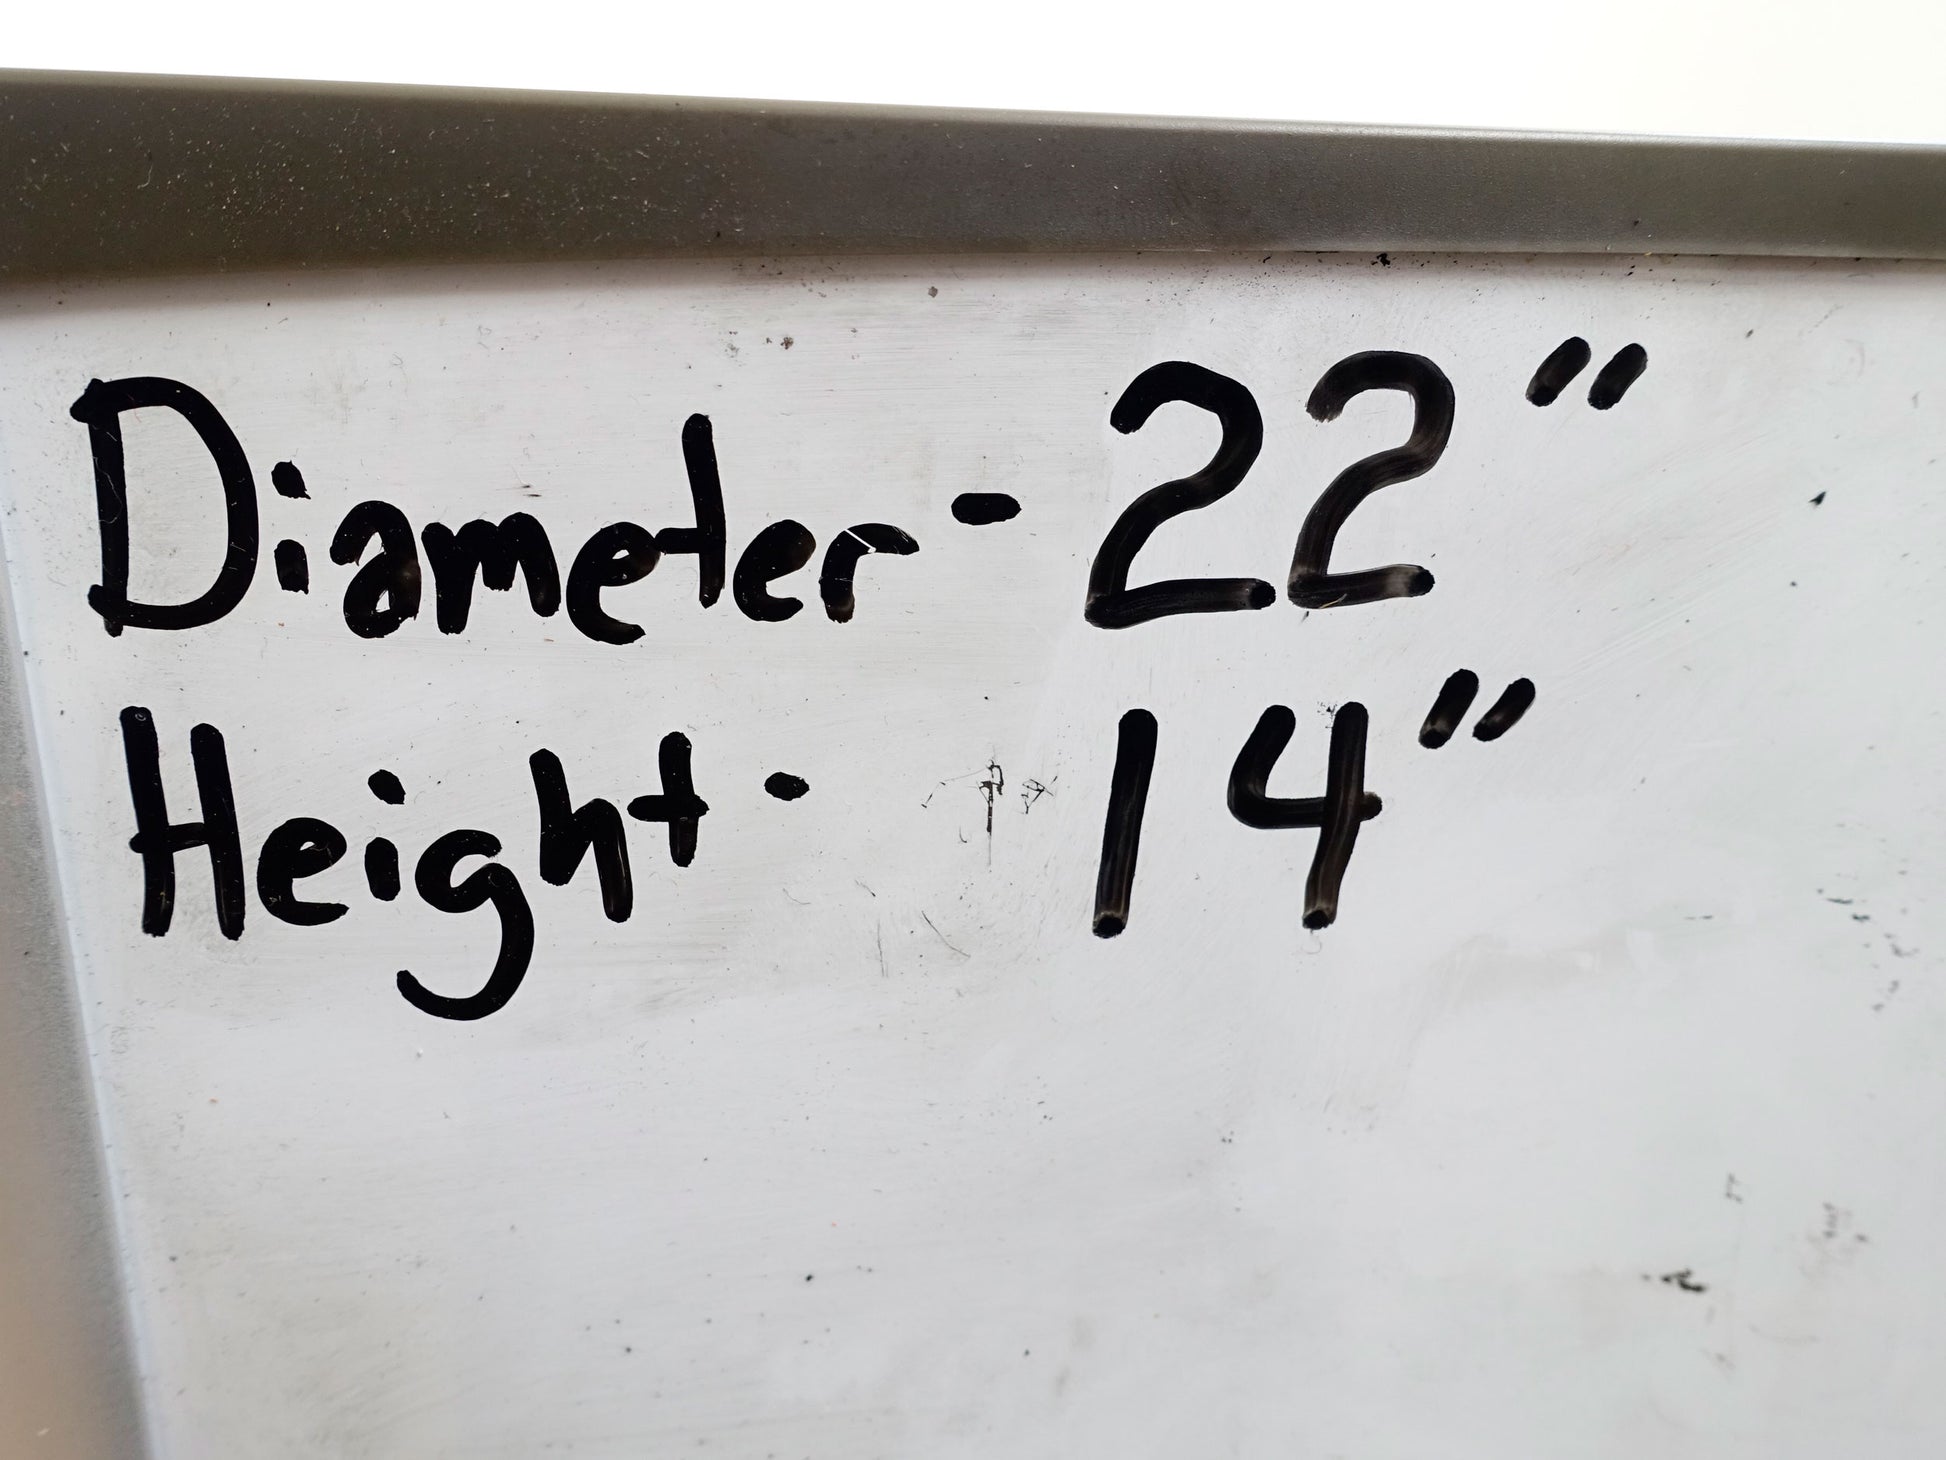 Diameter - 22"
Height - 14"